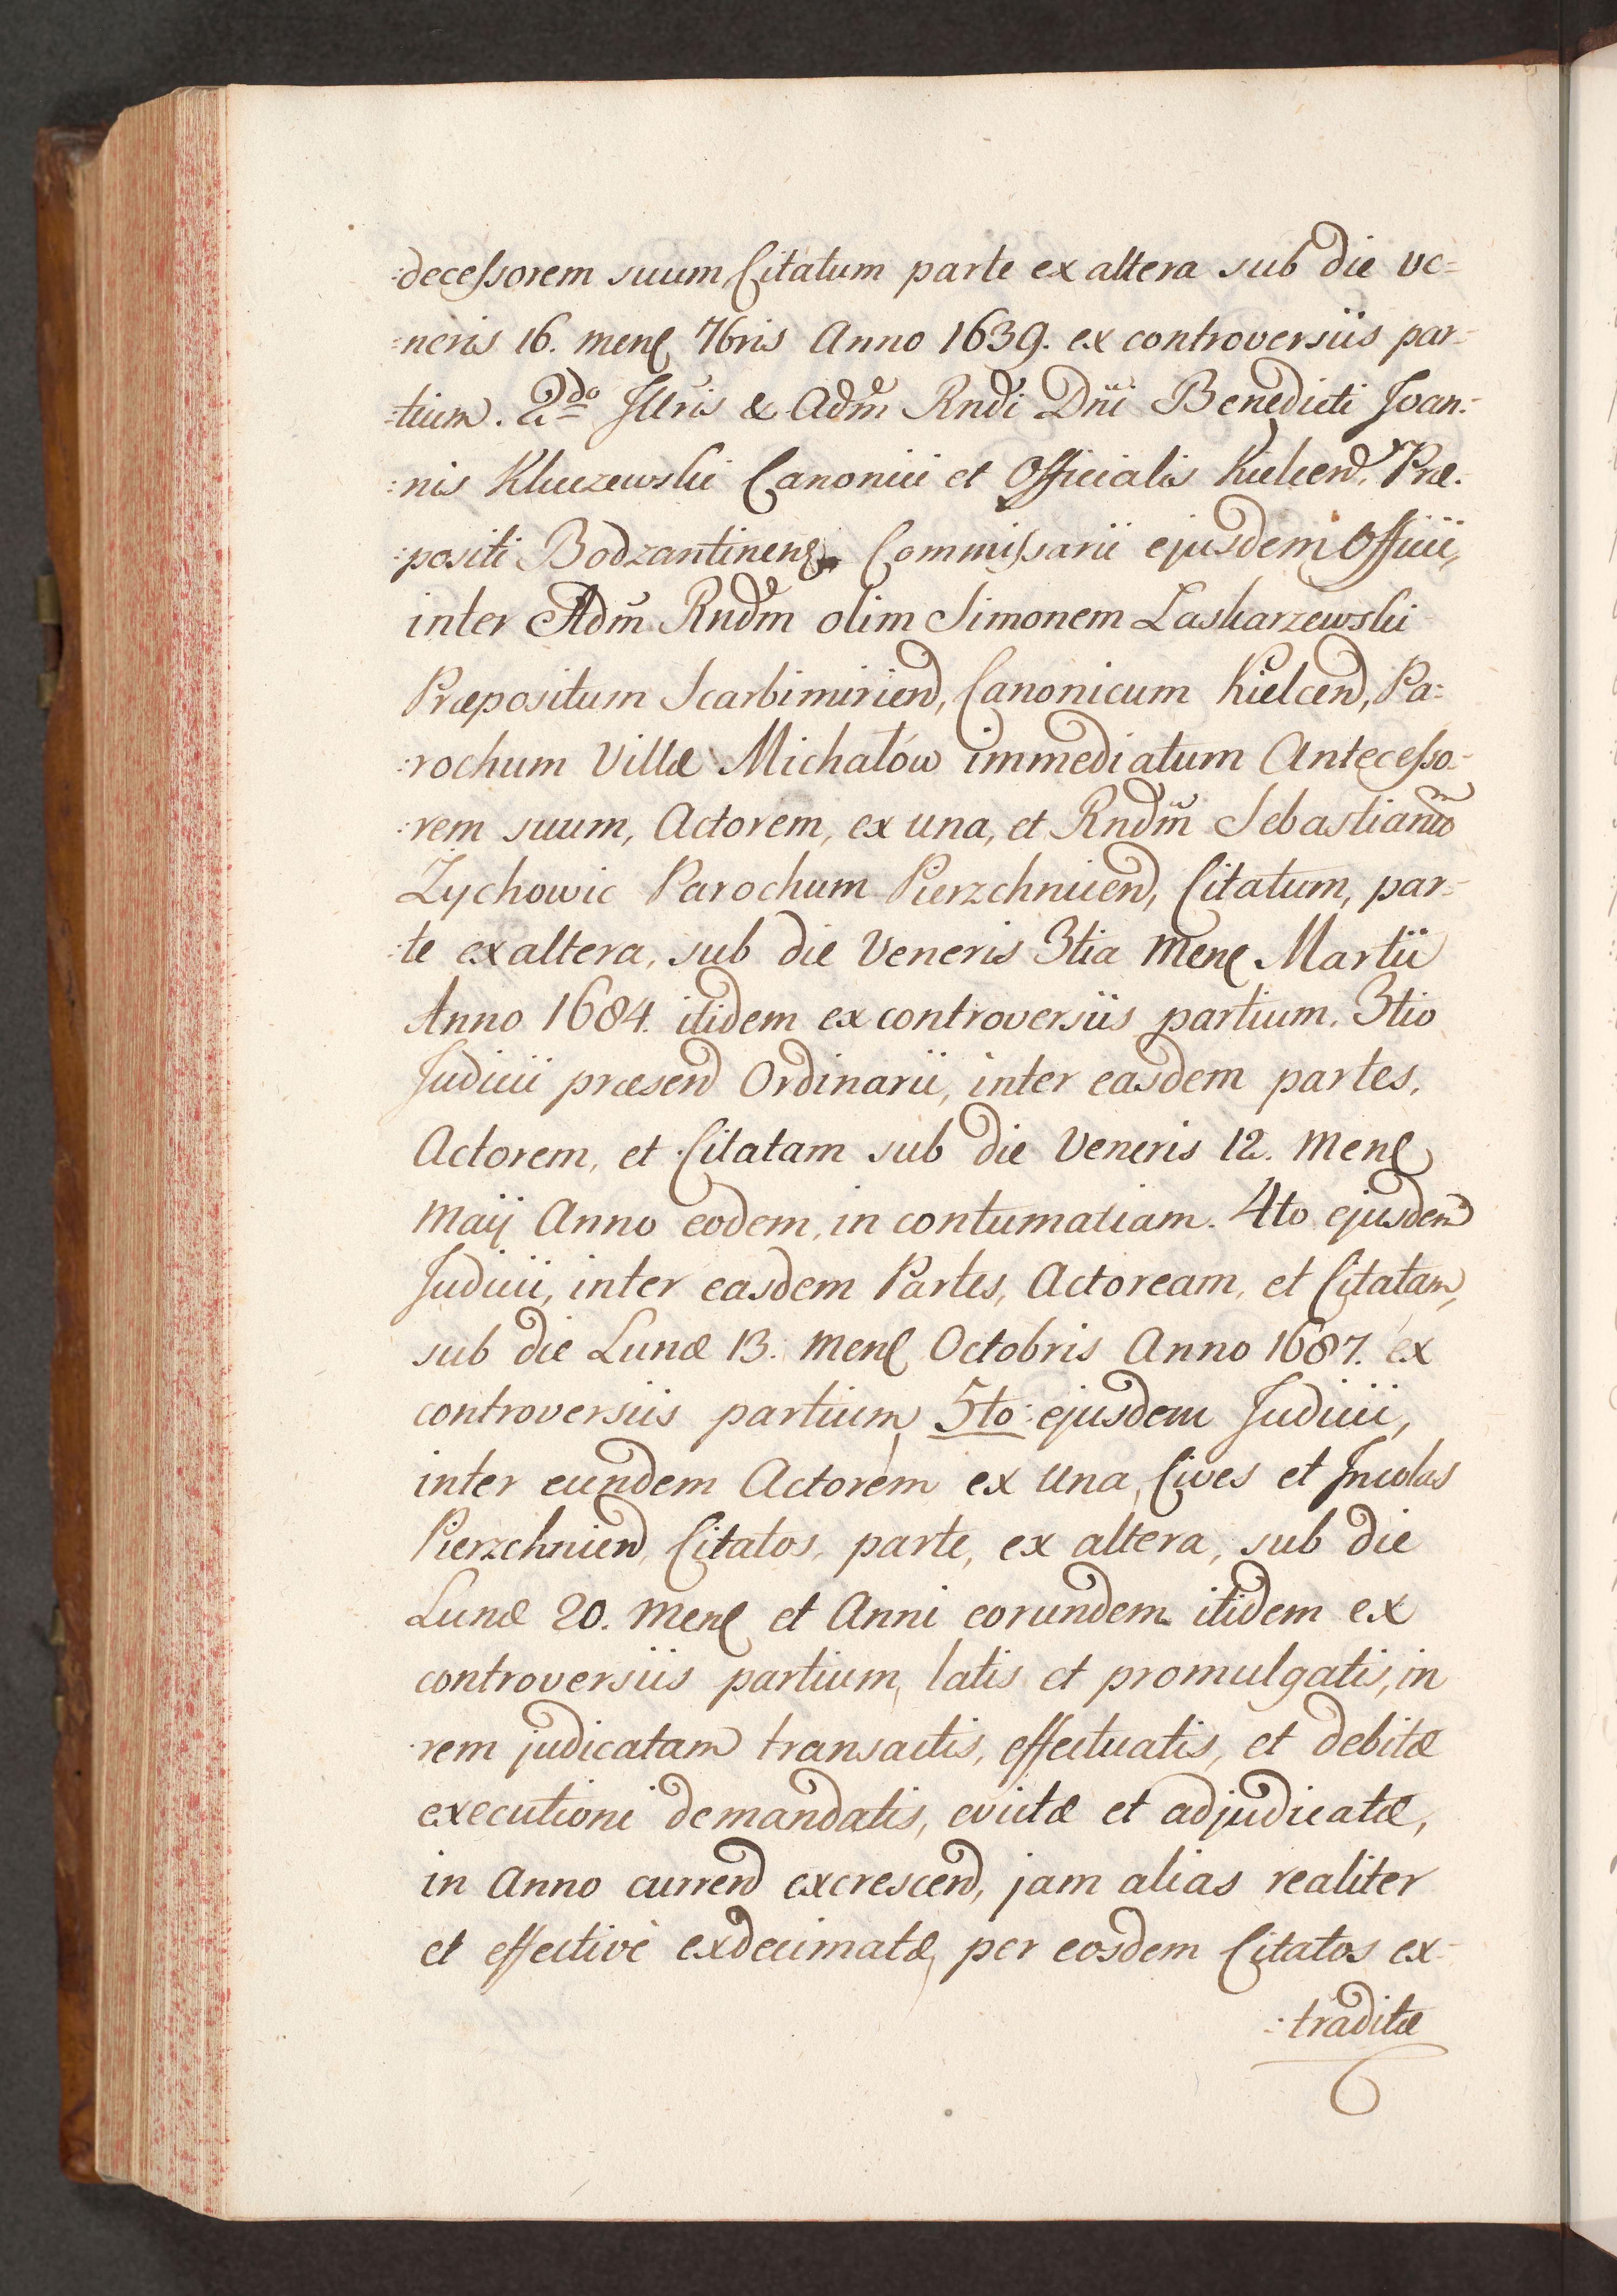 :decessorem suum Citatum parte ex altera sub die ve=
=neris 16. mens 7bris Anno 1639. ex controversiis par-
-tium. 2do Illris & Adm Rndi Dni Benedicti Joan:-
:nis Kluczewski Canonici et Officialis Kielcen, Præ.
:positi Bodzantinens Commissarii ejusdem Officii,
inter Adm Rndm olim Simonem Laskarzewski
Præpositum Scarbimirien, Canonicum Kielcen, Pa:
:rochum Villæ Michałow immediatum Antecesso-
:rem suum, Actorem, ex una, et Rndm Sebastianum
Zychowic Parochum Pierzchnicen, Citatum, par-
:te ex altera, sub die Veneris 3tia Mens Martii
Anno 1684. itidem ex controversiis partium. 3tio
Judicii præsen Ordinarii, inter easdem partes,
Actorem, et Citatam sub die Veneris 12. Mens
Maij Anno eodem, in contumaciam. 4to ejusdem
Judicii, inter easdem Partes, Actoream, et Citatam,
sub die Lunæ 13. Mens Octobris Anno 1687. ex
controversiis partium, 5to: ejusdem Judicii,
inter eundem Actorem ex una, Cives et Incolas
Pierzchnien, Citatos, parte, ex altera, sub die
Lunæ 20. Mens et Anni eorundem itidem ex
controversiis partium, latis et promulgatis, in
rem judicatam transactis, effectuatis, et debitæ
executioni demandatis, evictæ et adjudicatæ,
in Anno curren excrescen, jam alias realiter
et effectivè exdecimatæ, per eosdem Citatos ex-
:traditæ